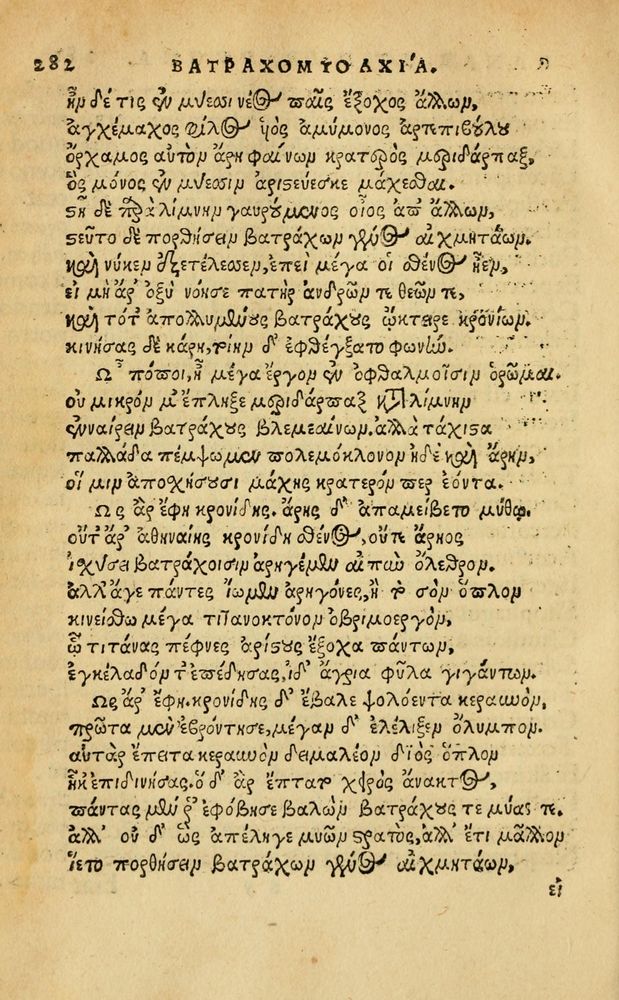 282 ΒΑΤΡΑΧΟΜΥΟΑΧΙ΄Α.
ἦν δέ τις ἐν μύεσσι νέος παῖς ἔξοχος ἄλλων,
ἀγχέμαχος φίλος ὑὸς ἀμύμονος ἀρτεπιβούλου
ὄρχαμος αὐτὸν ἄρη φαίνων κρατερὸς μεριδάρπαξ,
ὃς μόνος ἐν μύεσσιν ἀριστεύεσκε μάχεσθαι.
στῆ δὲ παρὰ λίμνην γαυρούμενος οἶος ἀπ' ἄλλων,
στεῦτο δὲ πορθήσειν βατράχων γένος αἰχμητάων.
καὶ νύκεν ἐξετέλεσσεν, ἐπεὶ μέγα οἱ σθένος ἦεν,
εἰ μὴ ἄρ' ὀξὺ νόησε πατὴρ ἀνδρῶν τε θεῶν τε,
καὶ τότ' ἀπολλυμένους βατράχους ᾤκτειρε κρονίων.
κινήσας δὲ κάρη, τοίην δ' ἐφθέγξατο φωνήν.
Ὢ πόποι, ἦ μέγα ἔργον ἐν ὀφθαλμοῖσιν ὁρῶμαι.
οὐ μικρόν μ' ἔπληξε μεριδάρπαξ κατὰ λίμνην
ἐναίρειν βατράχους βλεμεαίνων. ἀλλὰ τάχιστα
παλλάδα πέμψωμεν πολεμόκλονον ἠδὲ καὶ ἄρην,
οἵ μιν ἀποσχήσουσι μάχης κρατερόν περ ἐόντα.
Ὣς ἄρ ἔφη κρονίδης. ἄρης δ' ἀπαμείβετο μύθῳ.
οὔτ' ἄρ' ἀθηναίης κρονίδη σθένος, οὔτε ἄρηος
ἰσχύσει βατράχοισιν ἀρηγέμεν αἰπὺν ὄλεθρον.
ἀλλ' ἄγε πάντες ἴωμεν ἀρηγόνες, ἢ τὸ σὸν ὅπλον
κινείσθω μέγα τιτανοκτόνον ὀβριμοεργόν,
ᾧ τιτάνας πέφνες ἀρίστους ἔξοχα πάντων,
ἐγκέλαδόν τ' ἐπέδησας, ἰδ' ἄγρια φῦλα γιγάντων.
Ὣς ἄρ' ἔφη. κρονίδης δ' ἔβαλε ψολόεντα κεραυνόν,
πρῶτα μὲν ἐβρόντησε, μέγαν δ' ἐλέλιξεν ὄλυμπον.
αὐτὰρ ἔπειτα κεραυνὸν δειμαλέον διὸς ὅπλον
ἧκ' ἐπιδινήσας. ὁ δ' ἄρ ἔπτατο χειρὸς ἄνακτος,
πάντας μέν ῥ' ἐφόβησε βαλὼν βατράχους τε μύας τε.
ἀλλ' οὐ δ' ὣς ἀπέληγε μυῶν στρατὸς, ἀλλ' ἔτι μᾶλλον
ἵετο πορθήσειν βατράχων γένος αἰχμητάων,
εἰ